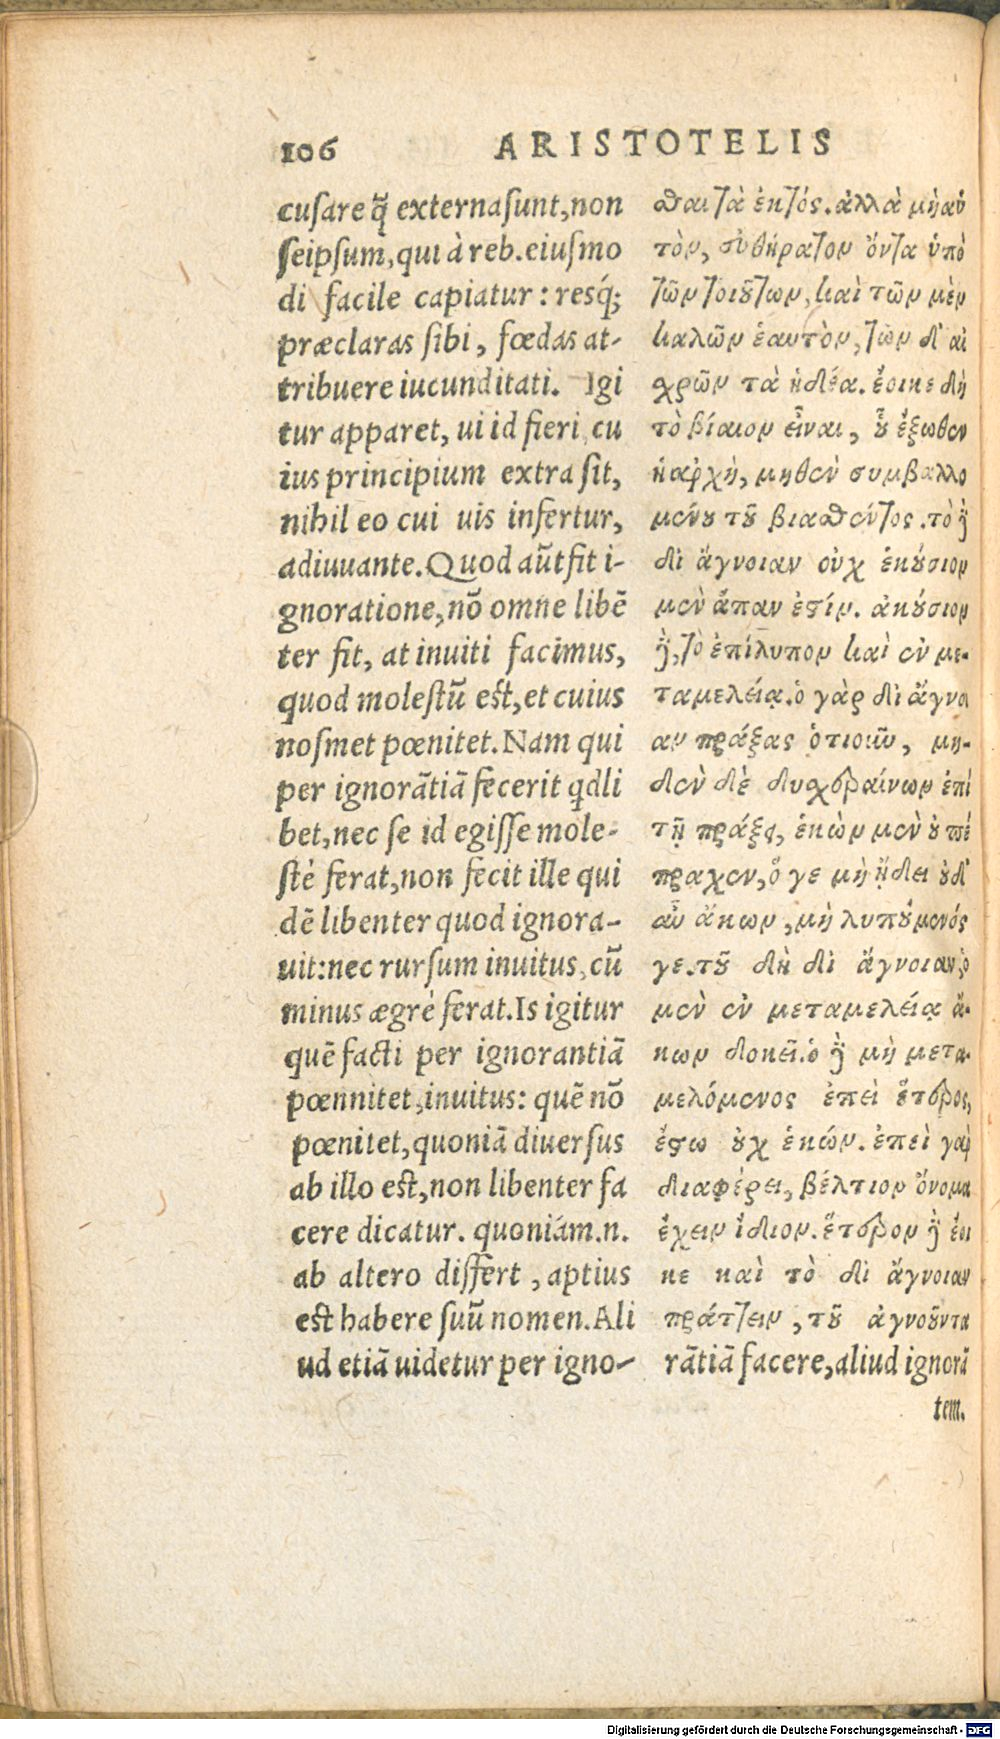 106 ARISTOTELIS
cusare q̃ externa sunt, non
seipsum, qui à reb. eiusmo
di facile capiatur: resq́;
præclaras sibi, fœdas at-
tribuere iucunditati. Igi
tur apparet, ui id fieri, cu
ius principium extra sit,
nihil eo cui uis infertur,
adiuuante. Quod aũt fit i-
gnoratione, nõ omne libẽ
ter fit, at inuiti facimus,
quod molestũ est, et cuius
nosmet pœnitet. Nam qui
per ignorãtiã fecerit qdli
bet, nec se id egisse mole-
stè ferat, non fecit ille qui
dẽ libenter quod ignora-
uit: nec rursum inuitus, cũ
minus ægrè ferat. Is igitur
quẽ facti per ignorantiã
pœnnitet, inuitus: quẽ nõ
pœnitet, quoniã diuersus
ab illo est, non libenter fa
cere dicatur. quoniám.n.
ab altero differt, aptius
est habere suũ nomen. Ali
ud etiã uidetur per igno-
θαι τὰ ἐκτός. ἀλλὰ μὴ αὑ
τὸν, εὐθήρατον ὄντα ὑπὸ
τῶν τοιούτων, καὶ τῶν μὲν
καλῶν ἑαυτὸν, τῶν δ' αἰ
χρῶν τὰ ἡδέα. ἔοικε δὴ
τὸ βίαιον εἶναι, οὗ ἔξωθεν
ἡ ἀρχὴ, μηθὲν συμβαλλο
μένου τοῦ βιασθέντος. τὸ δὲ
δι ἄγνοιαν οὐχ ἑκούσιον
μὲν ἅπαν ἐστίν. ἀκούσιον
δὲ, τὸ ἐπίλυπον καὶ ἐν με-
ταμελείᾳ. ὁ γὰρ δι ἄγνοι
αν πράξας ὁτιοῦν, μη-
δὲν δὲ δυσχεραίνων ἐπὶ
τῇ πράξει, ἑκὼν μὲν οὐ πέ
πραχεν, ὅ γε μὴ ᾔδει οὐδ'
αὖ ἄκων, μὴ λυπούμενός
γε. τοῦ δὴ δι ἄγνοιαν ὁ
μὲν ἐν μεταμελείᾳ ἄ-
κων δοκεῖ. ὁ δὲ μὴ μετα-
μελόμενος ἐπεὶ ἕτερος,
ἔστω οὐχ ἑκών. ἐπεὶ γὰρ
διαφέρει, βέλτιον ὄνομα
ἔχειν ἴδιον. ἕτερον δὲ ἔοι
κε καὶ τὸ δι ἄγνοιαν
πράττειν, τοῦ ἀγνοοῦντα
rãtiã facere, aliud ignorã
tem.
Digitalisierung gefördert durch die Deutsche Forschungsgemeinschaft - DFG